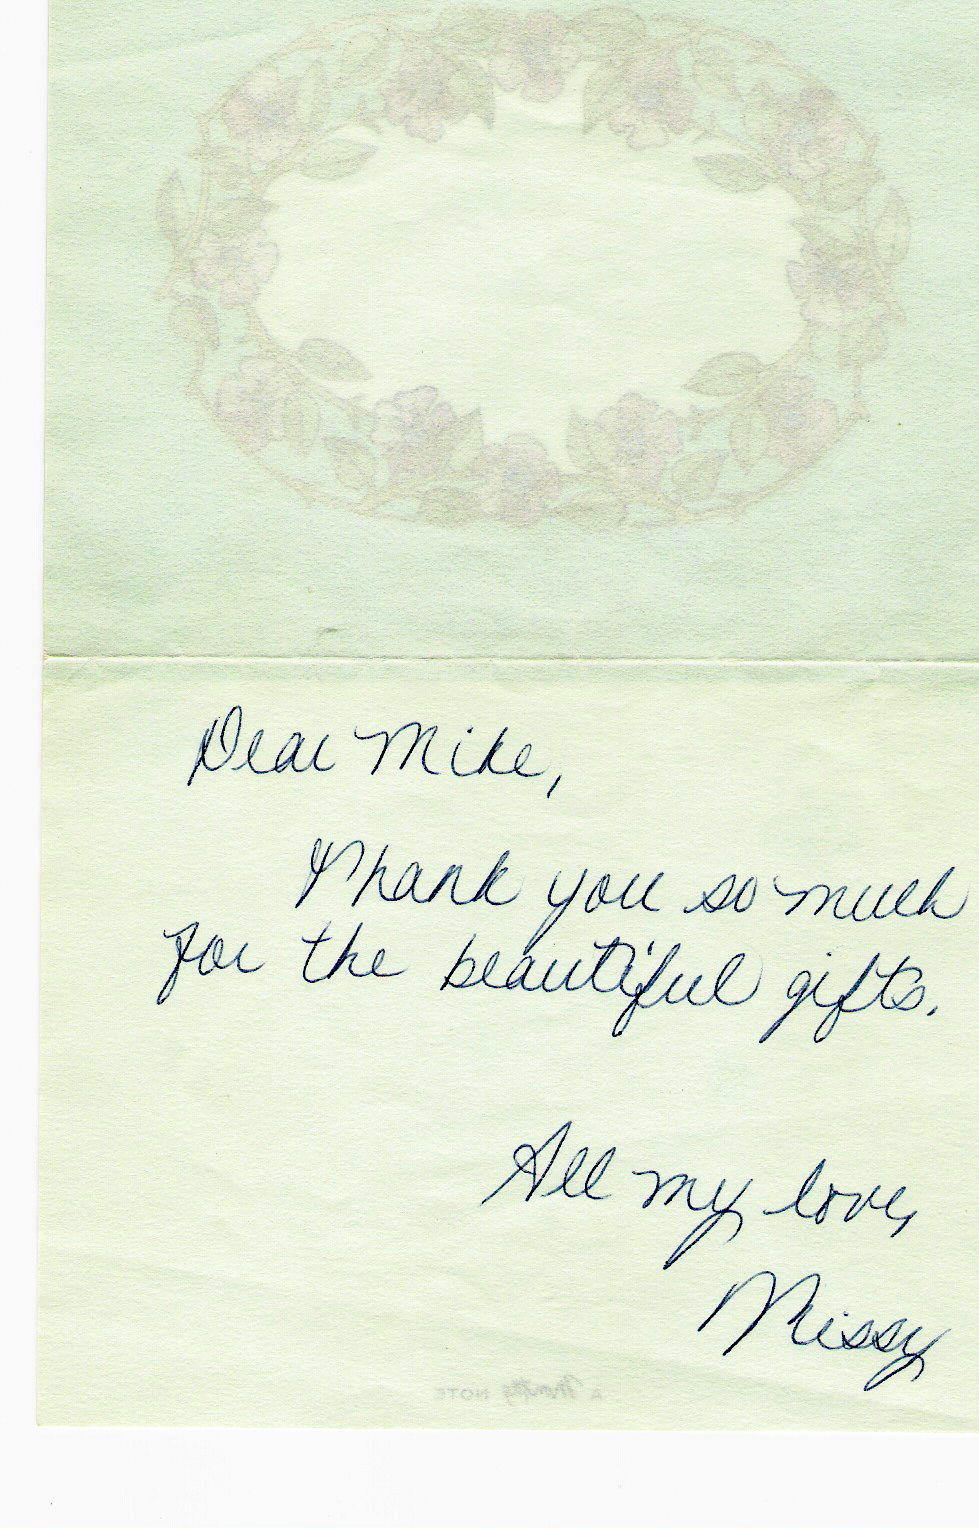 Dear Mike,
Thank you so much
for the beautiful gifts.
All my love,
Missy
A Thrifty NOTE